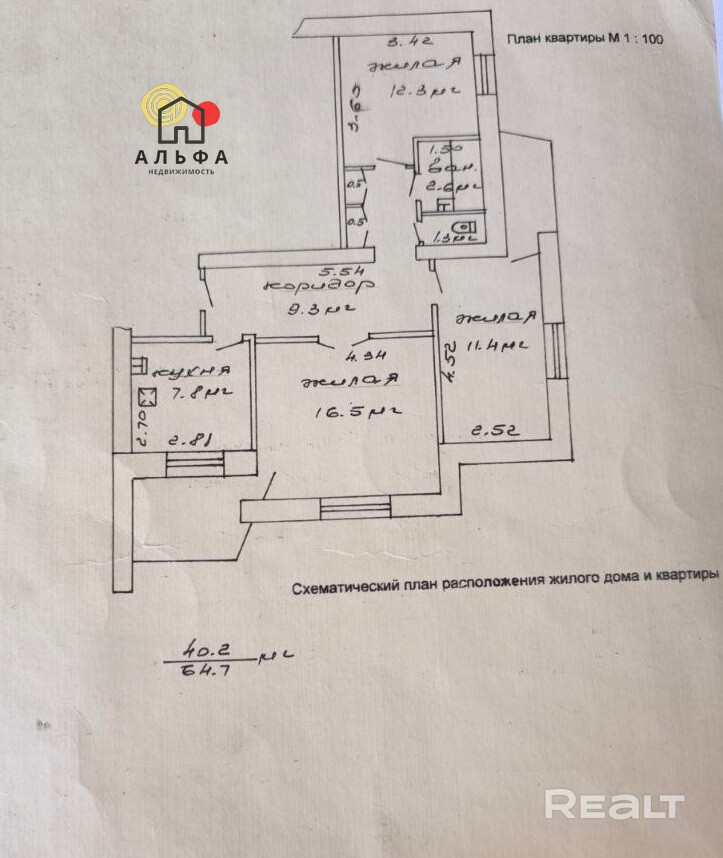 План квартиры М 1 : 100
3.42
жилая
12.3 м2
3.63
АЛЬФА
НЕДВИЖИМОСТЬ
1.50
ван.
2.6 м2
0.5
0.5
1.3 м2
5.54
коридор
9.3 м2
жилая
11.4 м2
4.52
2.52
4.94
жилая
16.5 м2
кухня
7.8 м2
2.70
2.81
Схематический план расположения жилого дома и квартиры
40.2
64.7 м2
Realt